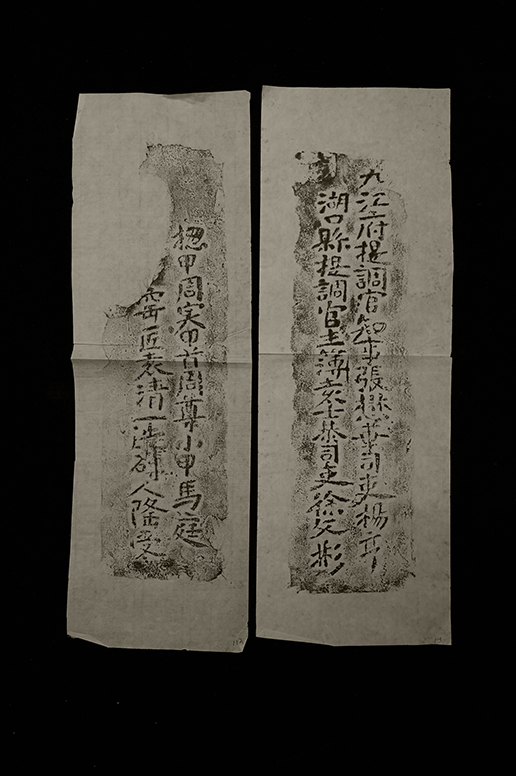 九江府提調官知事張司吏楊
湖口縣提調官主簿袁士恭司吏徐文彬
揔甲周宲甲首周尊小甲馬庭
窑匠袁清一造磚人隆受